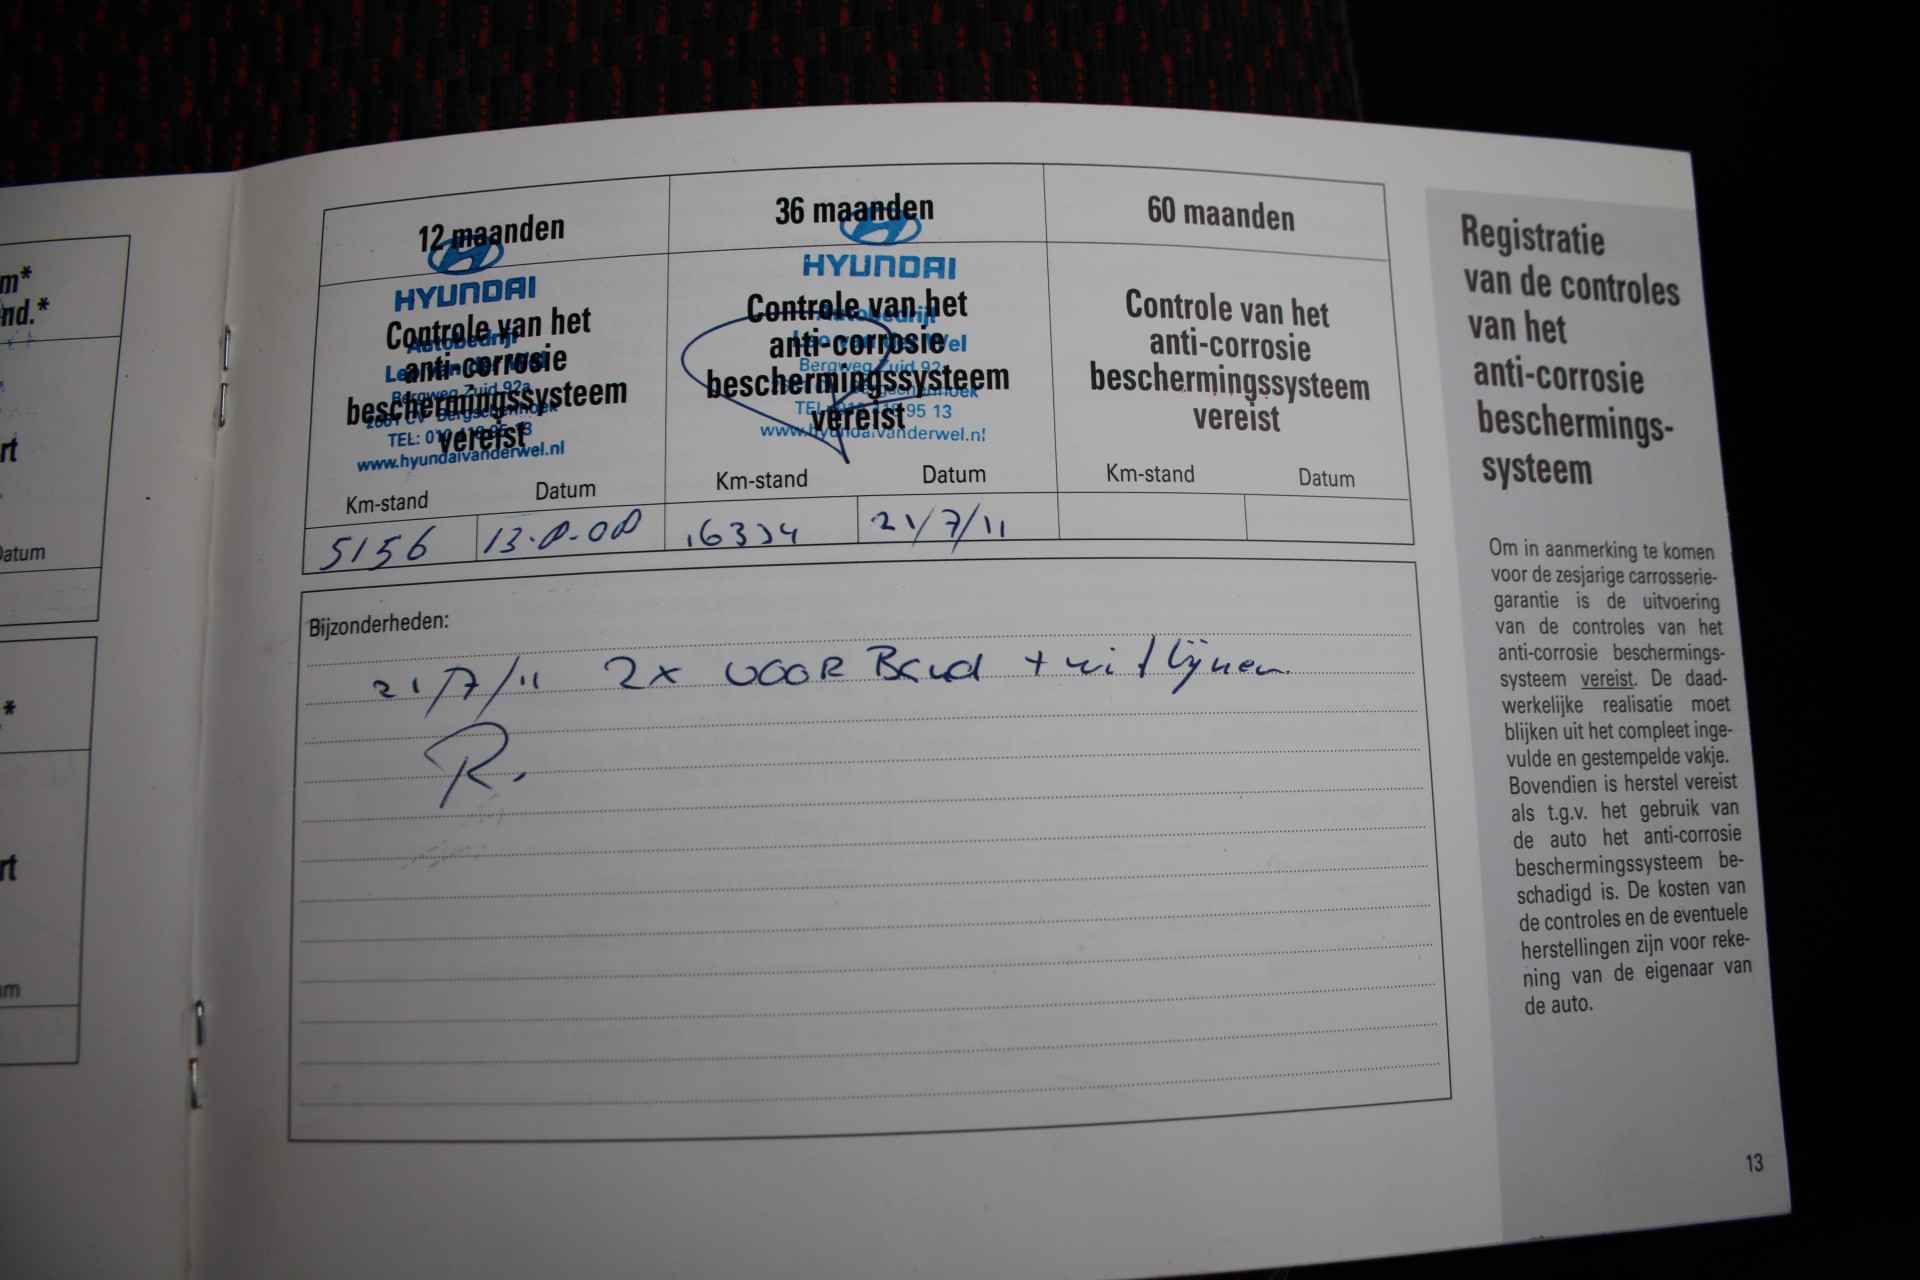 m*
nd.*
rt
Datum
*
rt
um
12 maanden
36 maanden
60 maanden
HYUNDAI
HYUNDAI
Controle van het
anti-corrosie
beschermingssysteem
vereist
Autobedrijf
Bergweg Zuid 92a
2661 CV Bergschenhoek
www.hyundaivanderwel.nl
Controle van het
anti-corrosie
beschermingssysteem
vereist
Autobedrijf
Leo van der Wel
Bergweg Zuid 92a
www.hyundaivanderwel.nl
Controle van het
anti-corrosie
beschermingssysteem
vereist
Km-stand Datum
Km-stand Datum
Km-stand Datum
5156 13-8-08
21/7/11
Bijzonderheden:
21/7/11 2x VOOR Band + uitlijnen
R.
Registratie
van de controles
van het
anti-corrosie
beschermings-
systeem
Om in aanmerking te komen
voor de zesjarige carrosserie-
garantie is de uitvoering
van de controles van het
anti-corrosie beschermings-
systeem vereist. De daad-
werkelijke realisatie moet
blijken uit het compleet inge-
vulde en gestempelde vakje.
Bovendien is herstel vereist
als t.g.v. het gebruik van
de auto het anti-corrosie
beschermingssysteem be-
schadigd is. De kosten van
de controles en de eventuele
herstellingen zijn voor reke-
ning van de eigenaar van
de auto.
13